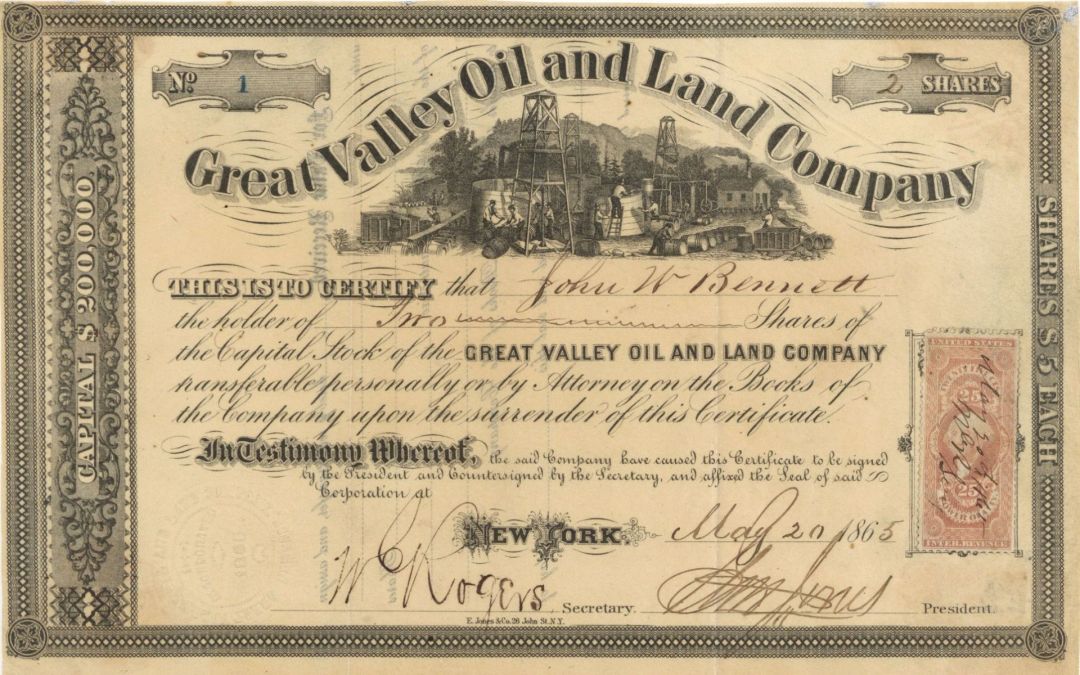 No. 1
2 SHARES
Great Valley Oil and Land Company
CAPITAL $200,000
SHARES $5 EACH
THIS IS TO CERTIFY that John W Bennett
the holder of Two Shares of
the Capital Stock of the GREAT VALLEY OIL AND LAND COMPANY
transferable personally or by Attorney on the Books of
the Company upon the surrender of this Certificate.
In Testimony Whereof, the said Company have caused this Certificate to be signed
by the President and Countersigned by the Secretary, and affixed the Seal of said
Corporation at
NEW YORK. May 20 1865
W C Rogers Secretary. President.
E. Jones & Co. 26 John St. N.Y.
UNITED STATES
25 25
POWER OF ATT'Y
INTER. REVENUE